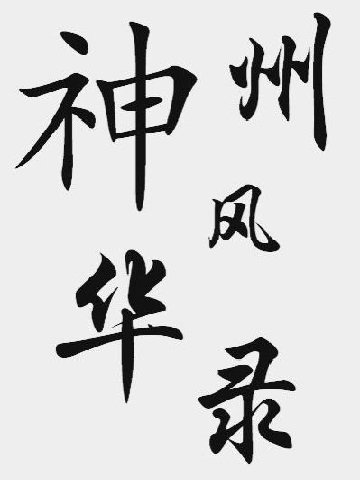 神州
风
华
录